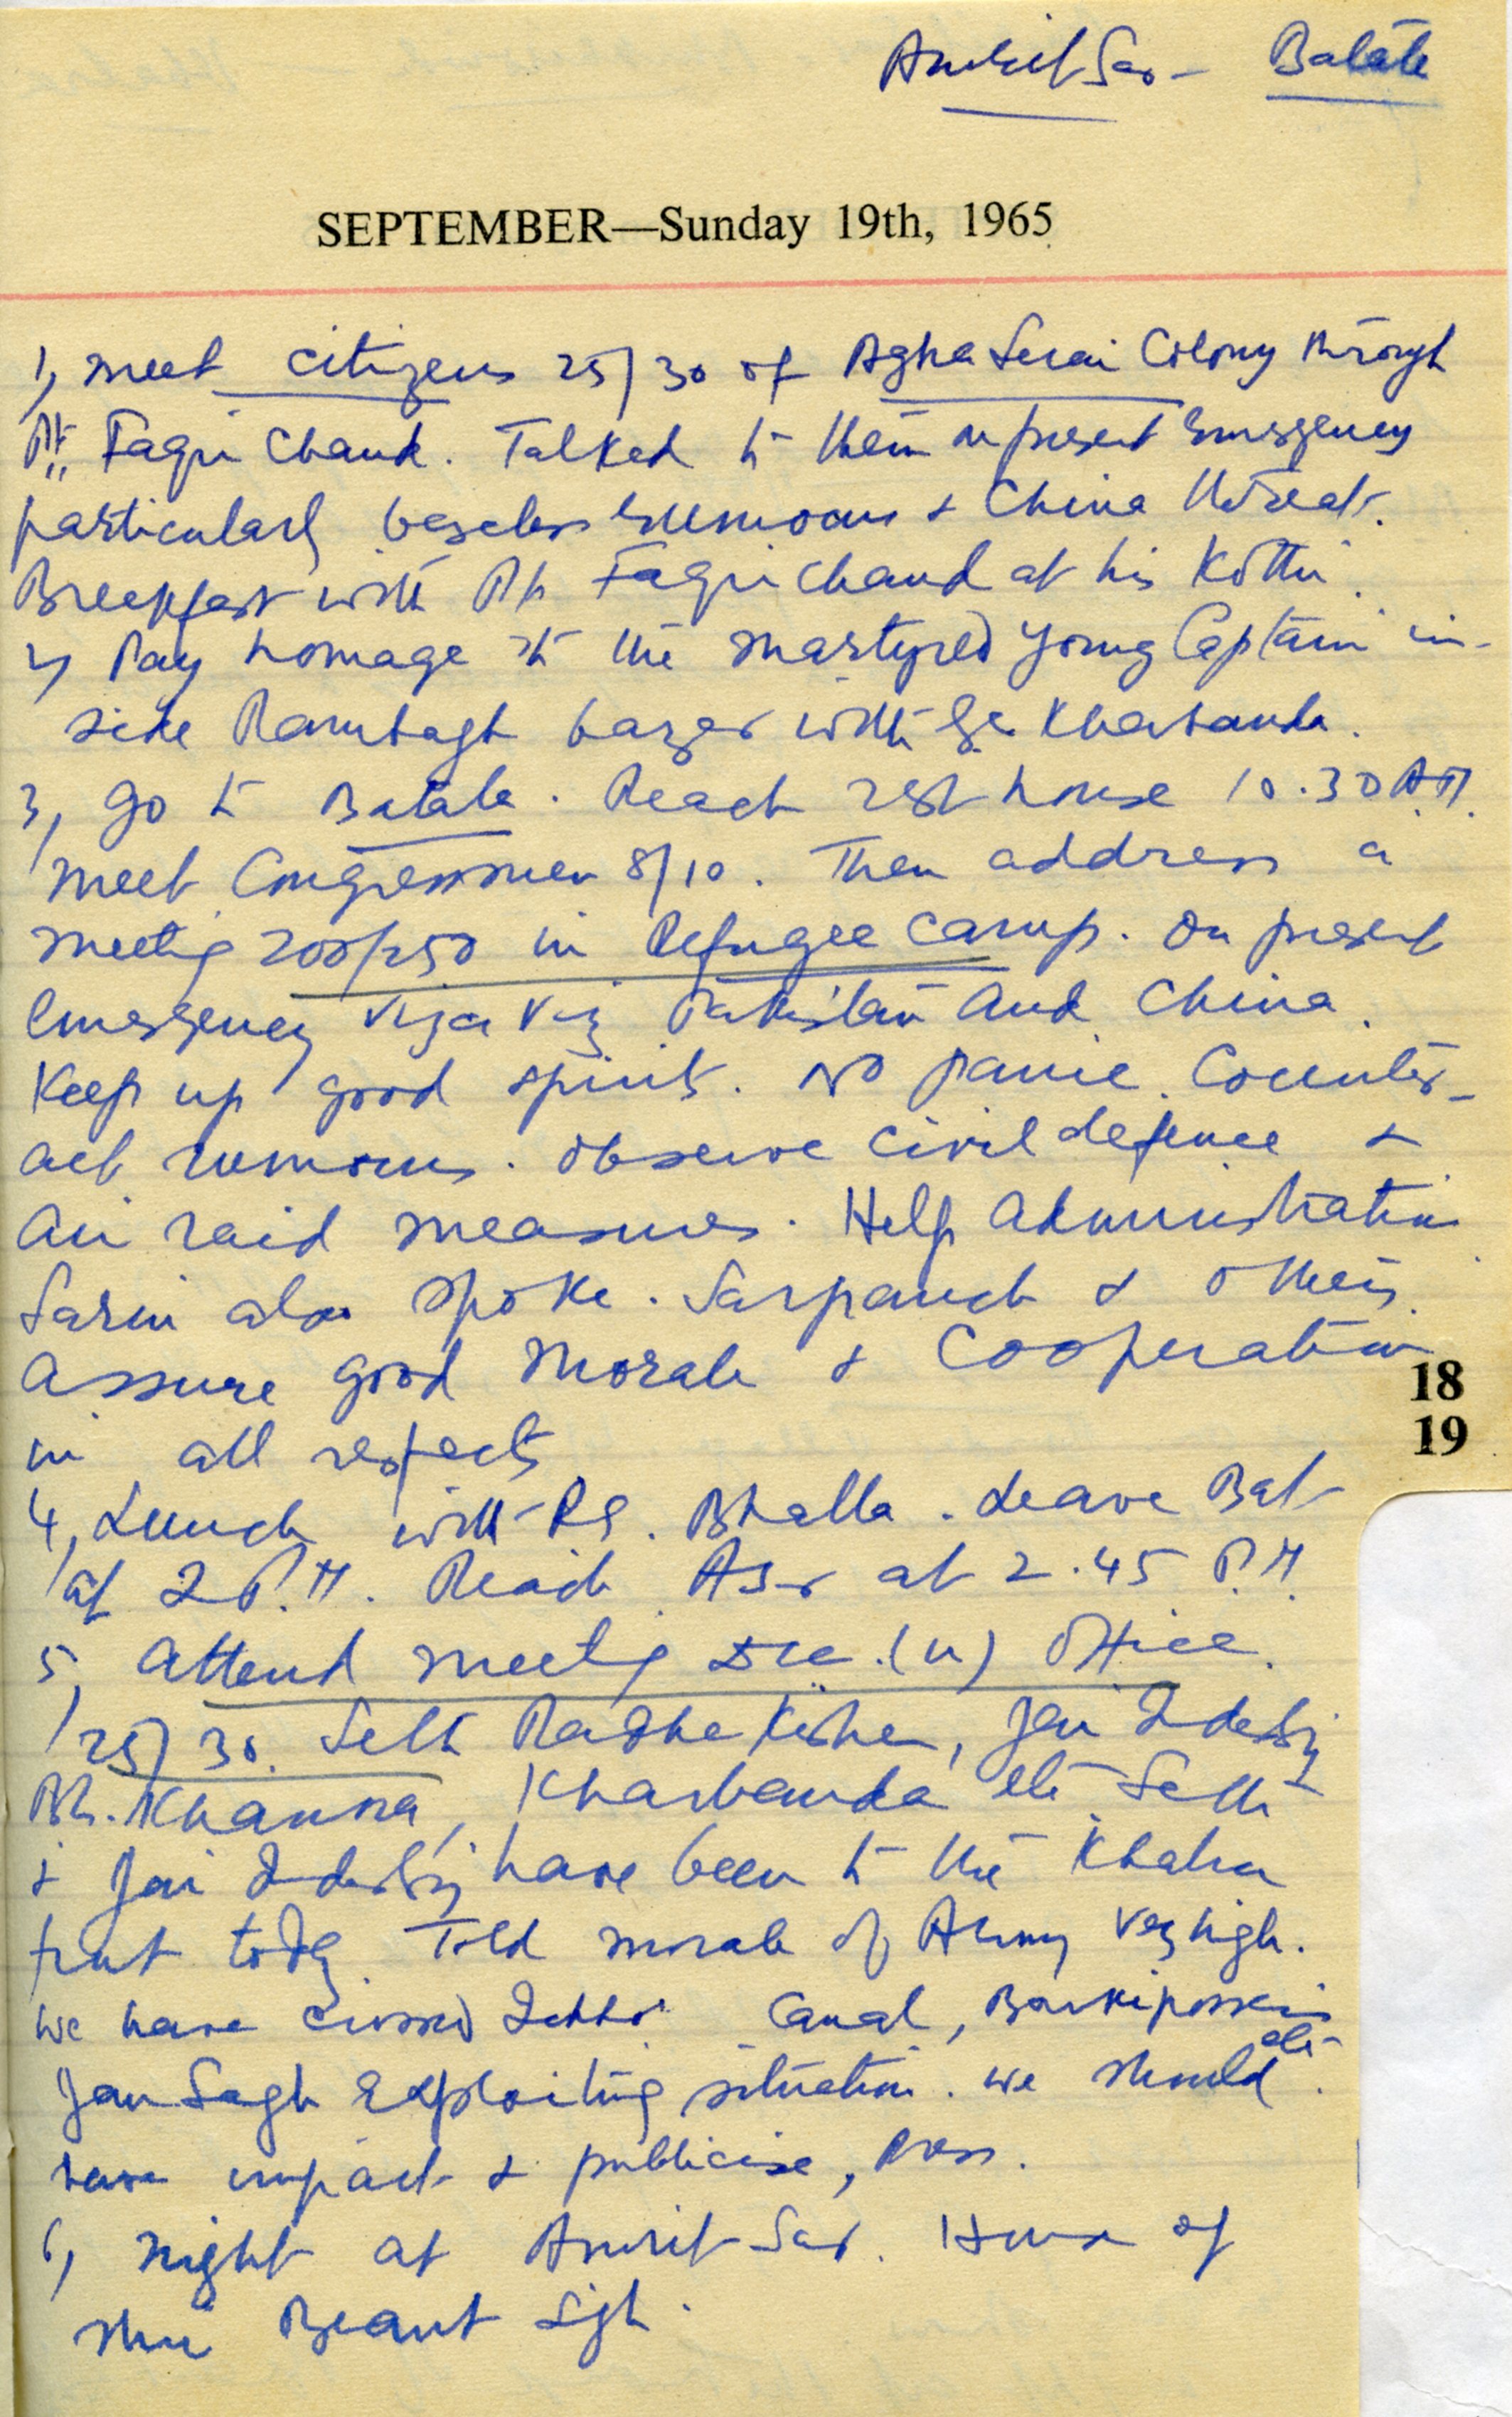 Amrit Sar - Batala
SEPTEMBER—Sunday 19th, 1965
1, meet citizens 25/30 of Agha Serai Colony through
Pt. Faqir Chand. Talked to them on present Emergency
particularly baseless rumours + China threat.
Breakfast with Pt. Faqir Chand at his Kothi.
2, Pay homage to the martyred young Captain in-
side Rambagh bazar with Kharbanda.
3, go to Batala. Reach rest house 10.30 A.M.
meet Congressmen 8/10. Then address a
meeting 200/250 in Refugee Camp. On present
Emergency viz a viz Pakistan and China.
Keep up good spirit. No panic. Counter-
act rumours. Observe civil defence +
Air raid measures. Help administration
Sarin also spoke. Sarpanch + others
assure good morale + Cooperation
18
in all respects
19
4, Lunch with R.S. Bhalla. Leave Bat
at 2 P.M. Reach Asr at 2.45 P.M.
5, attend meeting DCC.(U) Office.
25/30. Seth Radha Kishen, Jai Indersing
Bh. Khanna, Kharbanda etc. Seth
+ Jai Indersing have been to the Khalra
front today. Told morale of Army very high.
We have crossed Canal, Barki possession
etc.
Jan Sagh exploiting situation. We should
have impact + publicise, Press.
6, night at Amrit Sar. House of
Shri Beant Sigh.